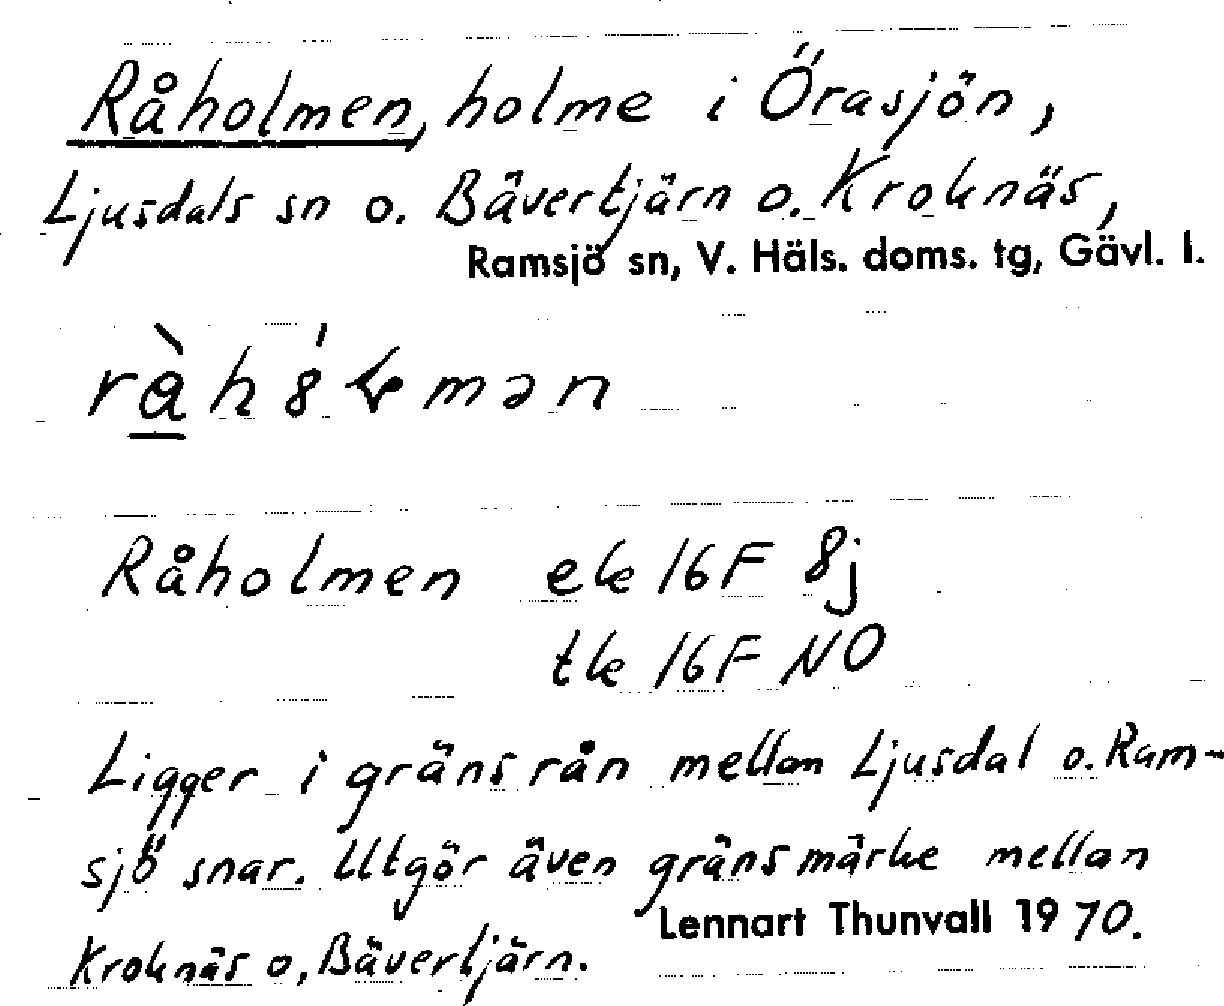 Råholmen, holme i Örasjön,
Ljusdals sn o. Bävertjärn o. Kroknäs,
Ramsjö sn, V. Häls. doms. tg, Gävl. l.
Råholmen ek 16F 8j
tk 16F NO
Ligger i gränsrån mellan Ljusdal o. Ram-
sjö snar. Utgör även gränsmärke mellan
Lennart Thunvall 1970.
Kroknäs o. Bävertjärn.